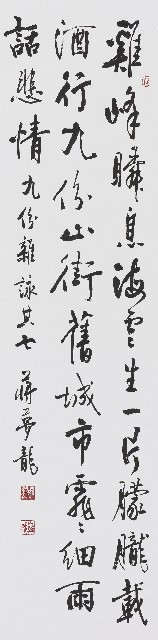 雞峰瞬息海雲生一片朦朧載
酒行九份山街舊城市霏霏細雨
話悲情 九份雜詠其七 蔣夢龍